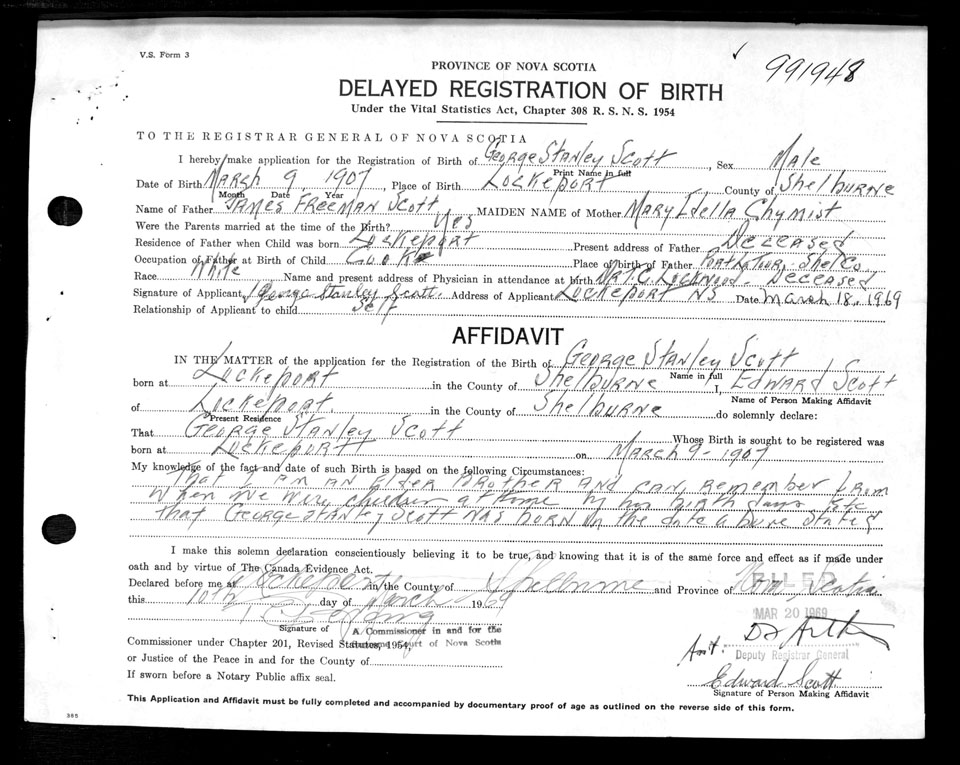 V.S. Form 3
991948
PROVINCE OF NOVA SCOTIA
DELAYED REGISTRATION OF BIRTH
Under the Vital Statistics Act, Chapter 308 R. S. N. S. 1954
TO THE REGISTRAR GENERAL OF NOVA SCOTIA
I hereby make application for the Registration of Birth of George Stanley Scott, Sex Male
Print Name in full
Date of Birth March 9 1907, Place of Birth Lockeport County of Shelburne
Month Date Year
Name of Father James Freeman Scott MAIDEN NAME of Mother Mary Idella Chymist
Were the Parents married at the time of the Birth? Yes
Residence of Father when Child was born Lockeport Present address of Father Deceased
Occupation of Father at Birth of Child Cook Place of birth of Father Port Latour, Shel Co
Race White Name and present address of Physician in attendance at birth Lockwood. Deceased
Signature of Applicant George Stanley Scott. Address of Applicant Lockeport NS Date March 18, 1969
Relationship of Applicant to child Self
AFFIDAVIT
IN THE MATTER of the application for the Registration of the Birth of George Stanley Scott
Name in full
born at Lockeport in the County of Shelburne I, Edward Scott
Name of Person Making Affidavit
of Lockeport. in the County of Shelburne do solemnly declare:
Present Residence
That George Stanley Scott Whose Birth is sought to be registered was
born at Lockeport on March 9 - 1907
My knowledge of the fact and date of such Birth is based on the following Circumstances:
That I am an elder brother and can remember from
when we were children his birth days etc
that George Stanley Scott was born on the date above stated
I make this solemn declaration conscientiously believing it to be true, and knowing that it is of the same force and effect as if made under
oath and by virtue of The Canada Evidence Act.
Declared before me at Lockeport in the County of Shelburne and Province of Nova Scotia
FILED
this 10th day of March 1969
MAR 20 1969
Signature of A Commissioner in and for the
Commissioner under Chapter 201, Revised Statutes, 1954, Supreme Court of Nova Scotia
Deputy Registrar General
or Justice of the Peace in and for the County of
Edward Scott
If sworn before a Notary Public affix seal.
Signature of Person Making Affidavit
This Application and Affidavit must be fully completed and accompanied by documentary proof of age as outlined on the reverse side of this form.